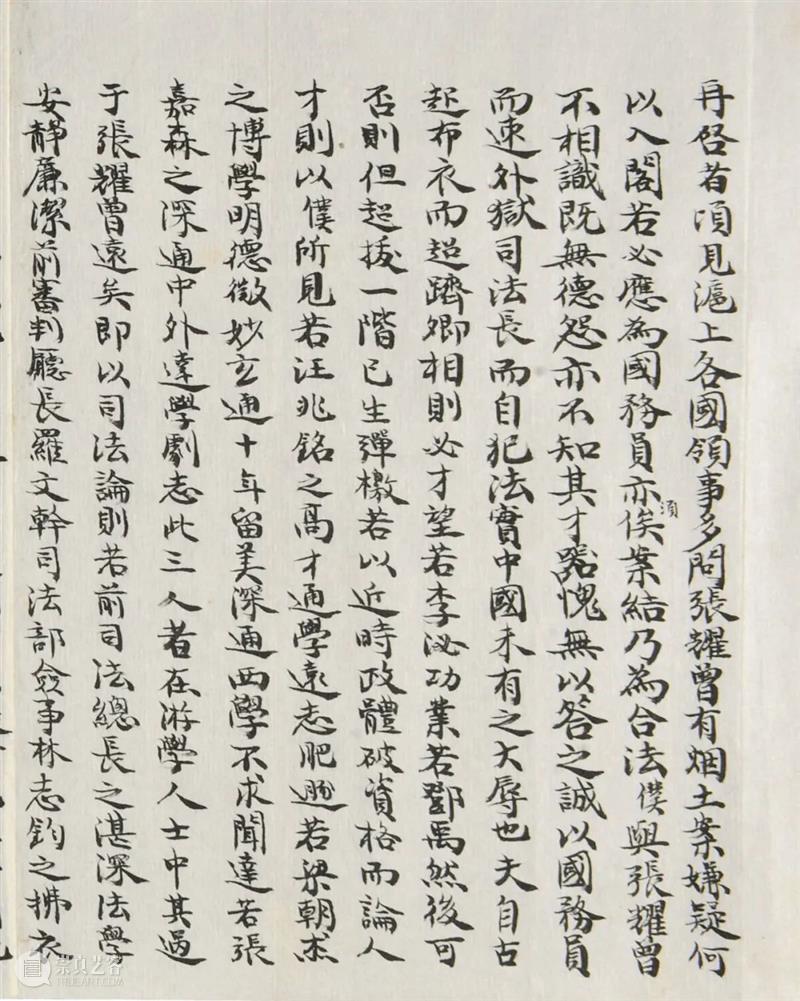 再啓者頃見滬上各國領事多問張耀曾有烟土案嫌疑何
以入閣若必應為國務員亦須俟案結乃為合法僕與張耀曾
不相識既無德怨亦不知其才器愧無以答之誠以國務員
而速外獄司法長而自犯法實中國未有之大辱也夫自古
起布衣而超躋卿相則必才望若李泌功業若鄧禹然後可
否則但超拔一階已生彈檄若以近時政體破資格而論人
才則以僕所見若汪兆銘之高才通學遠志肥遯若梁朝杰
之博學明德微妙玄通十年留美深通西學不求聞達若張
嘉森之深通中外達學劇志此三人者在游學人士中其過
于張耀曾遠矣即以司法論則若前司法總長之湛深法學
安靜廉潔前審判廳長羅文幹司法部僉事林志鈞之拂衣
崇真艺客